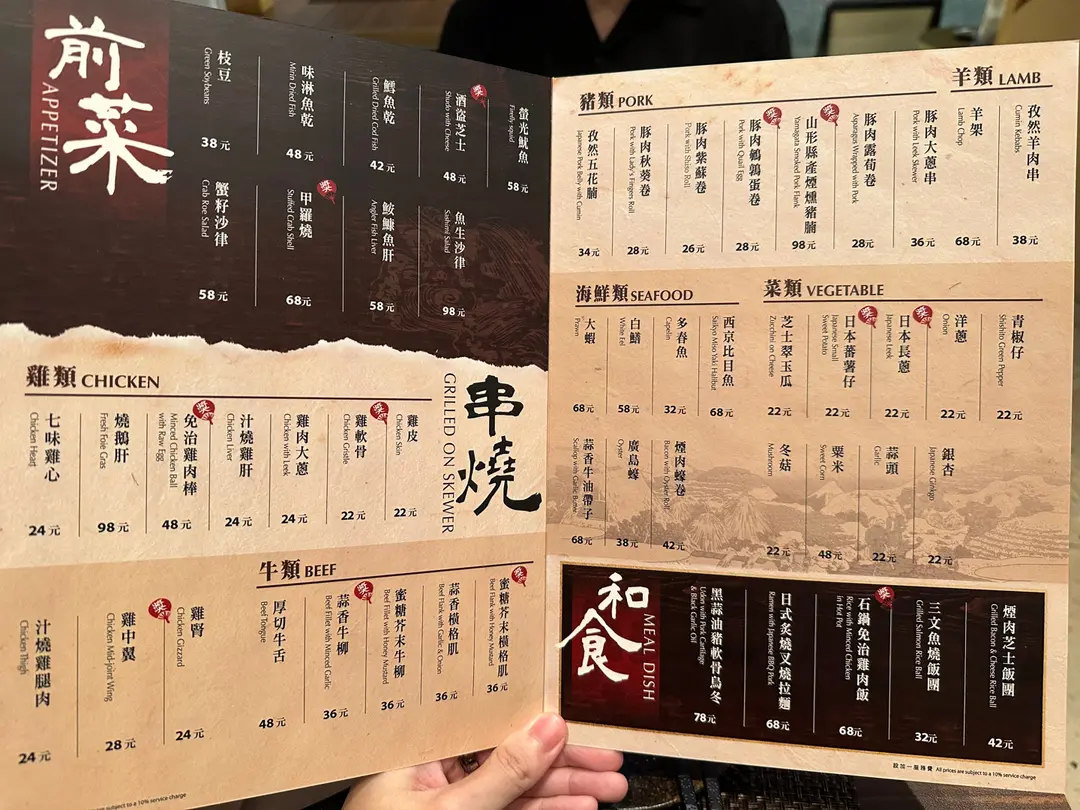 前菜
APPETIZER
枝豆
Green Soybeans
38元
味淋魚乾
Mirin Dried Fish
48元
鱈魚乾
Grilled Dried Cod Fish
42元
酒盜芝士
Shudo with Cheese
48元
螢光魷魚
Firefly squid
58元
蟹籽沙律
Crab Roe Salad
58元
甲羅燒
Stuffed Crab Shell
68元
鮟鱇魚肝
Angler Fish Liver
58元
魚生沙律
Sashimi Salad
98元
串燒
GRILLED ON SKEWER
雞類 CHICKEN
七味雞心
Chicken Heart
24元
燒鵝肝
Fresh Foie Gras
98元
免治雞肉棒
Minced Chicken Ball
with Raw Egg
48元
汁燒雞肝
Chicken Liver
24元
雞肉大蔥
Chicken with Leek
24元
雞軟骨
Chicken Gristle
22元
雞皮
Chicken Skin
22元
汁燒雞腿肉
Chicken Thigh
24元
雞中翼
Chicken Mid-Joint Wing
28元
雞腎
Chicken Gizzard
24元
牛類 BEEF
厚切牛舌
Beef Tongue
48元
蒜香牛柳
Beef Fillet with Minced Garlic
36元
蜜糖芥末牛柳
Beef Fillet with Honey Mustard
36元
蒜香橫格肌
Beef Flank with Garlic & Onion
36元
蜜糖芥末橫格肌
Beef Flank with Honey Mustard
36元
subject to a 10% service charge
豬類 PORK
孜然五花腩
Japanese Pork Belly with Cumin
34元
豚肉秋葵卷
Pork with Lady's Fingers Roll
28元
豚肉紫蘇卷
Pork with Shiso Roll
26元
豚肉鵪鶉蛋卷
Pork with Quail Egg
28元
山形縣產煙燻豬腩
Yamagata Smoked Pork Flank
98元
豚肉露荀卷
Asparagus Wrapped with Pork
28元
豚肉大蔥串
Pork with Leek Skewer
36元
羊類 LAMB
羊架
Lamb Chop
68元
孜然羊肉串
Cumin Kebabs
38元
海鮮類 SEAFOOD
大蝦
Prawn
68元
白鱔
White Eel
58元
多春魚
Capelin
32元
西京比目魚
Saikyo Miso Yaki Halibut
68元
蒜香牛油帶子
Scallop with Garlic Butter
68元
廣島蠔
Oyster
38元
煙肉蠔卷
Bacon with Oyster Roll
42元
菜類 VEGETABLE
芝士翠玉瓜
Zucchini on Cheese
22元
日本蕃薯仔
Japanese Small
Sweet Potato
22元
日本長蔥
Japanese Leek
22元
洋蔥
Onion
22元
青椒仔
Shishito Green Pepper
22元
冬菇
Mushroom
22元
粟米
Sweet Corn
48元
蒜頭
Garlic
22元
銀杏
Japanese Ginkgo
22元
和食
MEAL DISH
黑蒜油豬軟骨烏冬
Udon with Pork Cartilage
& Black Garlic Oil
78元
日式炙燒叉燒拉麵
Ramen with Japanese BBQ Pork
68元
石鍋免治雞肉飯
Rice with Minced Chicken
in Hot Pot
68元
三文魚燒飯團
Grilled Salmon Rice Ball
32元
煙肉芝士飯團
Grilled Bacon & Cheese Rice Ball
42元
設加一服務費 All prices are subject to a 10% service charge